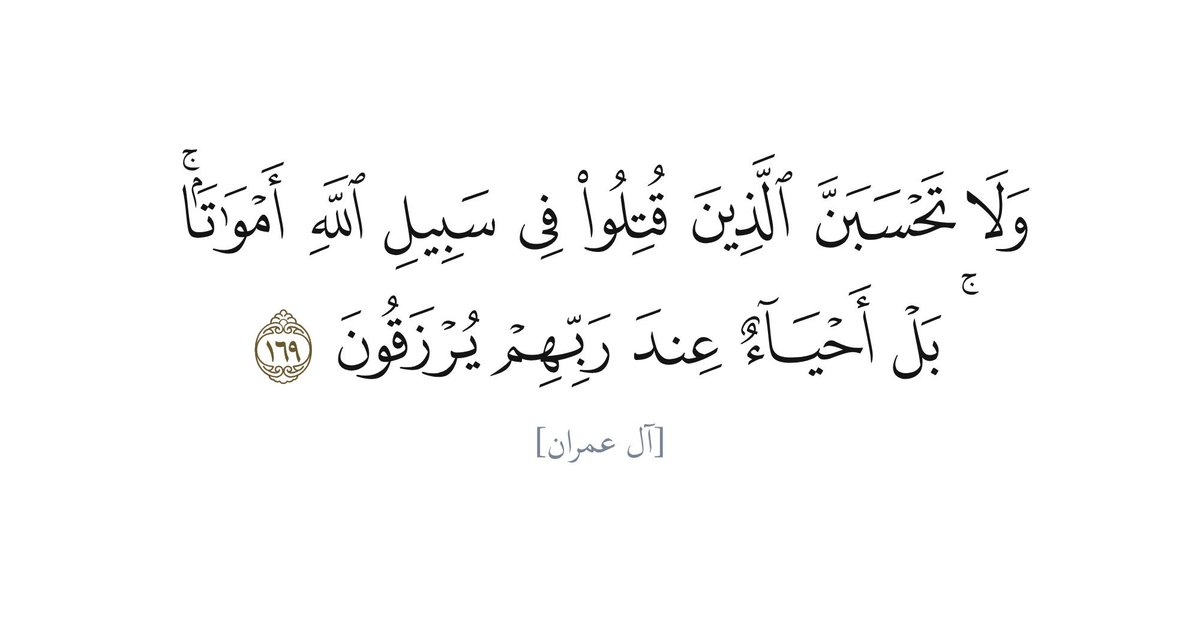 وَلَا تَحْسَبَنَّ ٱلَّذِينَ قُتِلُوا۟ فِى سَبِيلِ ٱللَّهِ أَمْوَٰتًۢا ۚ
ۚ بَلْ أَحْيَآءٌ عِندَ رَبِّهِمْ يُرْزَقُونَ ١٦٩
[آل عمران]